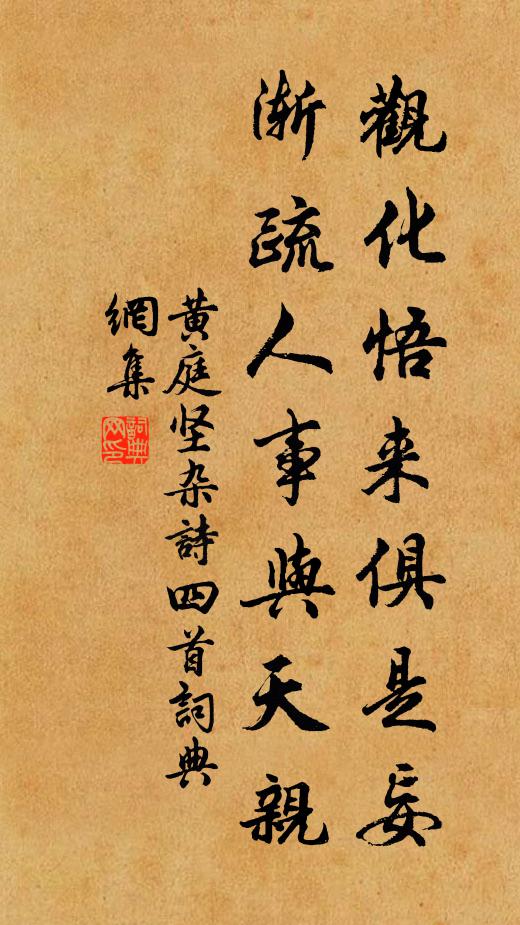 觀化悟来俱是妄
漸疏人事與天親
黄庭坚杂詩四首詞典
網集
詞典
网印